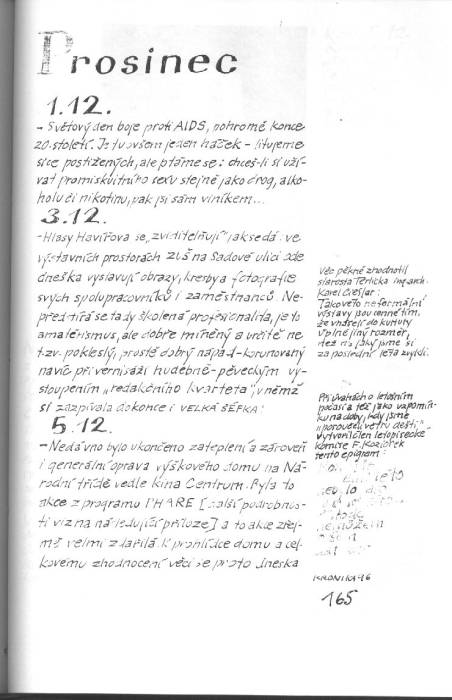 Prosinec
1.12.
- Světový den boje proti AIDS, pohromě konce
20. století. Je tu ovšem jeden háček - litujeme
sice postižených, ale ptáme se: chceš-li si uží-
vat promiskuitního sexu stejně jako drog, alko-
holu či nikotinu, pak jsi sám viníkem...
3.12.
- Hlasy Havířova se „zviditelňují" jak se dá: ve
výstavních prostorách ZUŠ na Sadové ulici ode
dneška vystavují obrazy, kresby a fotografie
svých spolupracovníků i zaměstnanců. Ne-
předtírá se tady školená profesionalita, je to
amatérismus, ale dobře míněný a určitě ne
t.zv. pokleslý, prostě dobrý nápad - korunovaný
navíc při vernisáži hudebně-pěveckým vy-
stoupením „redakčního kvarteta", v němž
si zazpívala dokonce i VELKÁ ŠÉFKA!
5.12.
- Nedávno bylo ukončeno zateplení a zároveň
i generální oprava výškového domu na Ná-
rodní třídě vedle kina Centrum. Byla to
akce z programu PHARE [další podrobnos-
ti viz na následující příloze] a to akce zřej-
mě velmi zdařilá. K prohlídce domu a cel-
kovému zhodnocení věci se proto dneska
Věc pěkně zhodnotil
starosta Těrlicka ing. arch.
Karel Cieślar:
Takovéto neformální
výstavy jsou cenné tím,
že vnášejí do kultury
úplně jiný rozměr,
než na jaký jsme si
za poslední léta zvykli.
Při úvahách o letošním
počasí a též jako vzpomín-
ku na doby, kdy jsme
„poroučeli větru dešti",
vytvořil člen letopisecké
komise F. Kozlotek
tento epigram:
léto
KRONIKA 96
165